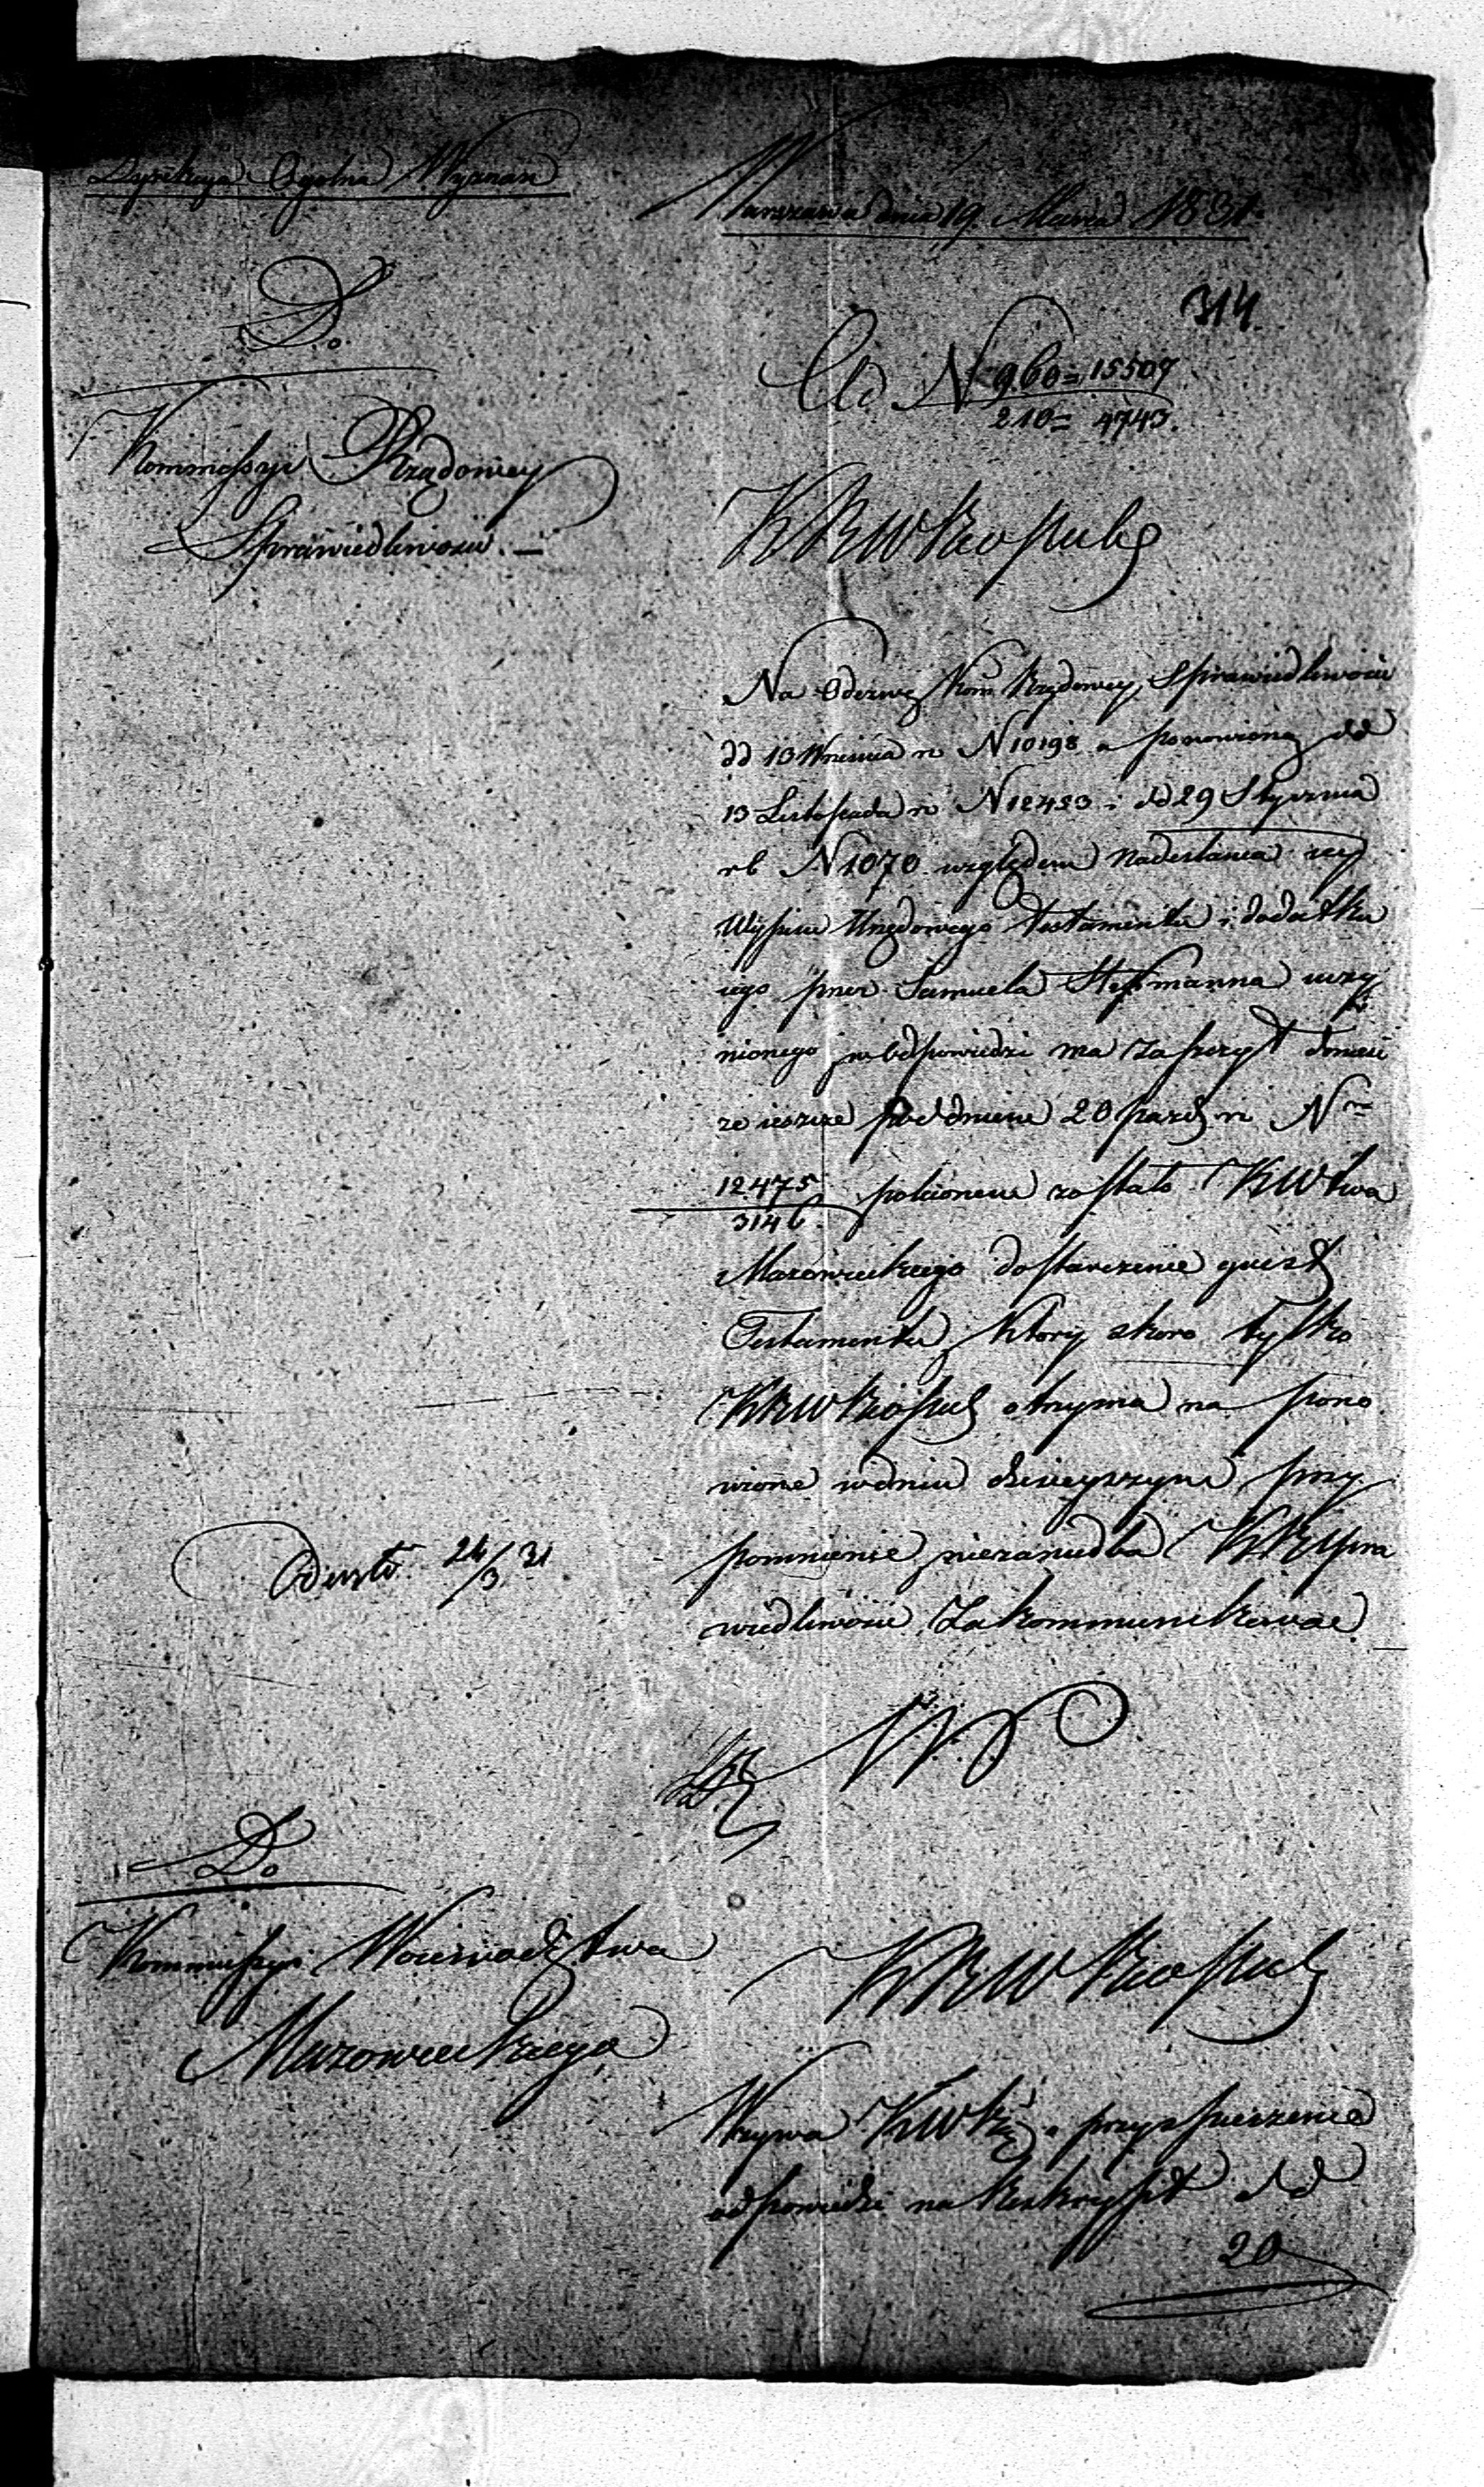 Dyrekcya Ogolna Wyznan
Warszawa dnia 19. Marca 1831
314.
Do
Ad N 960 = 15507
210 = 4743.
Kommissyi Rządowey
Sprawiedliwości. —
KRWR i O publ
Na Odezwę Kom Rządowey Sprawiedliwości
dd 13 Września r N 10198 a ponowioną dd
13 Listopada r N 12423 i dd 29 Stycznia
rb N 1070 względem nadesłania iey
Wypisu Urzędowego testamentu i dodatku
iego przez Samuela uczy
nionego w odpowiedzi ma zaszczyt donieść
że ieszcze pod dniem 20 paźdz r N
12475
3146. poleconem zostało KWtwa
Mazowieckiego dostarczenie
Testamentu, który skoro tylko
KRW otrzyma na pono
wione w dniu dzisieyszym przy
pomnienie niezaniedba KRSpra
wiedliwości zakommunikować.
24/3 31
Do
Kommissyi Woiewodztwa
Mazowieckiego
KRW
Wzywa KW o przyspieszenie
odpowiedzi na Reskrypt dd
20